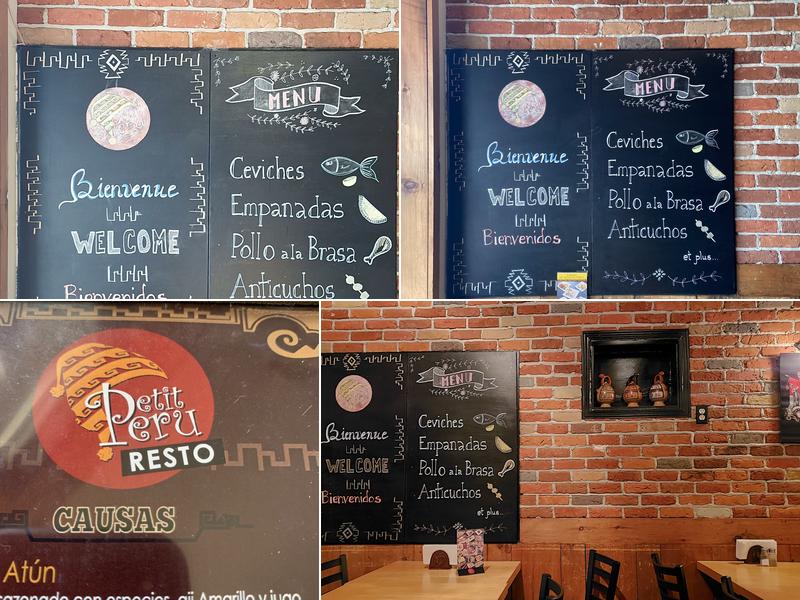 MENU
Bienvenue
WELCOME
Bienvenidos
Ceviches
Empanadas
Pollo a la Brasa
Anticuchos
MENU
Bienvenue
WELCOME
Bienvenidos
Ceviches
Empanadas
Pollo a la Brasa
Anticuchos
et plus...
Petit
Peru
RESTO
CAUSAS
Atún
sazonado con especies, aji Amarillo y jugo
MENU
Bienvenue
WELCOME
Bienvenidos
Ceviches
Empanadas
Pollo a la Brasa
Anticuchos
et plus...